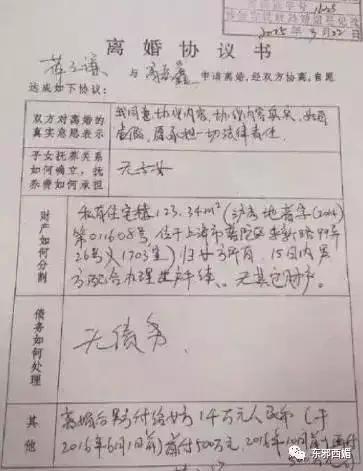 2015年3月22日
离婚协议书
与
申请离婚,经双方协商,自愿
达成如下协议:
双方对离婚的
真实意思表示
我同意协议内容,协议内容真实,如有
虚假,愿承担一切法律责任.
子女抚养关系
如何确立,抚
养费如何承担
无子女
财产如何分割
私有住宅楼123.34m²(沪房地普字(2014)
第011608号,位于上海市普陀区
26号1703室)归女方所有,15日内男
方配合办理过户手续.、无其它财产。
债务如何处理
无债务.
其他
离婚后男付给女方1千万元人民币(于
2015年6月1日前)首付500万元,2015年10月前
东邪西媚